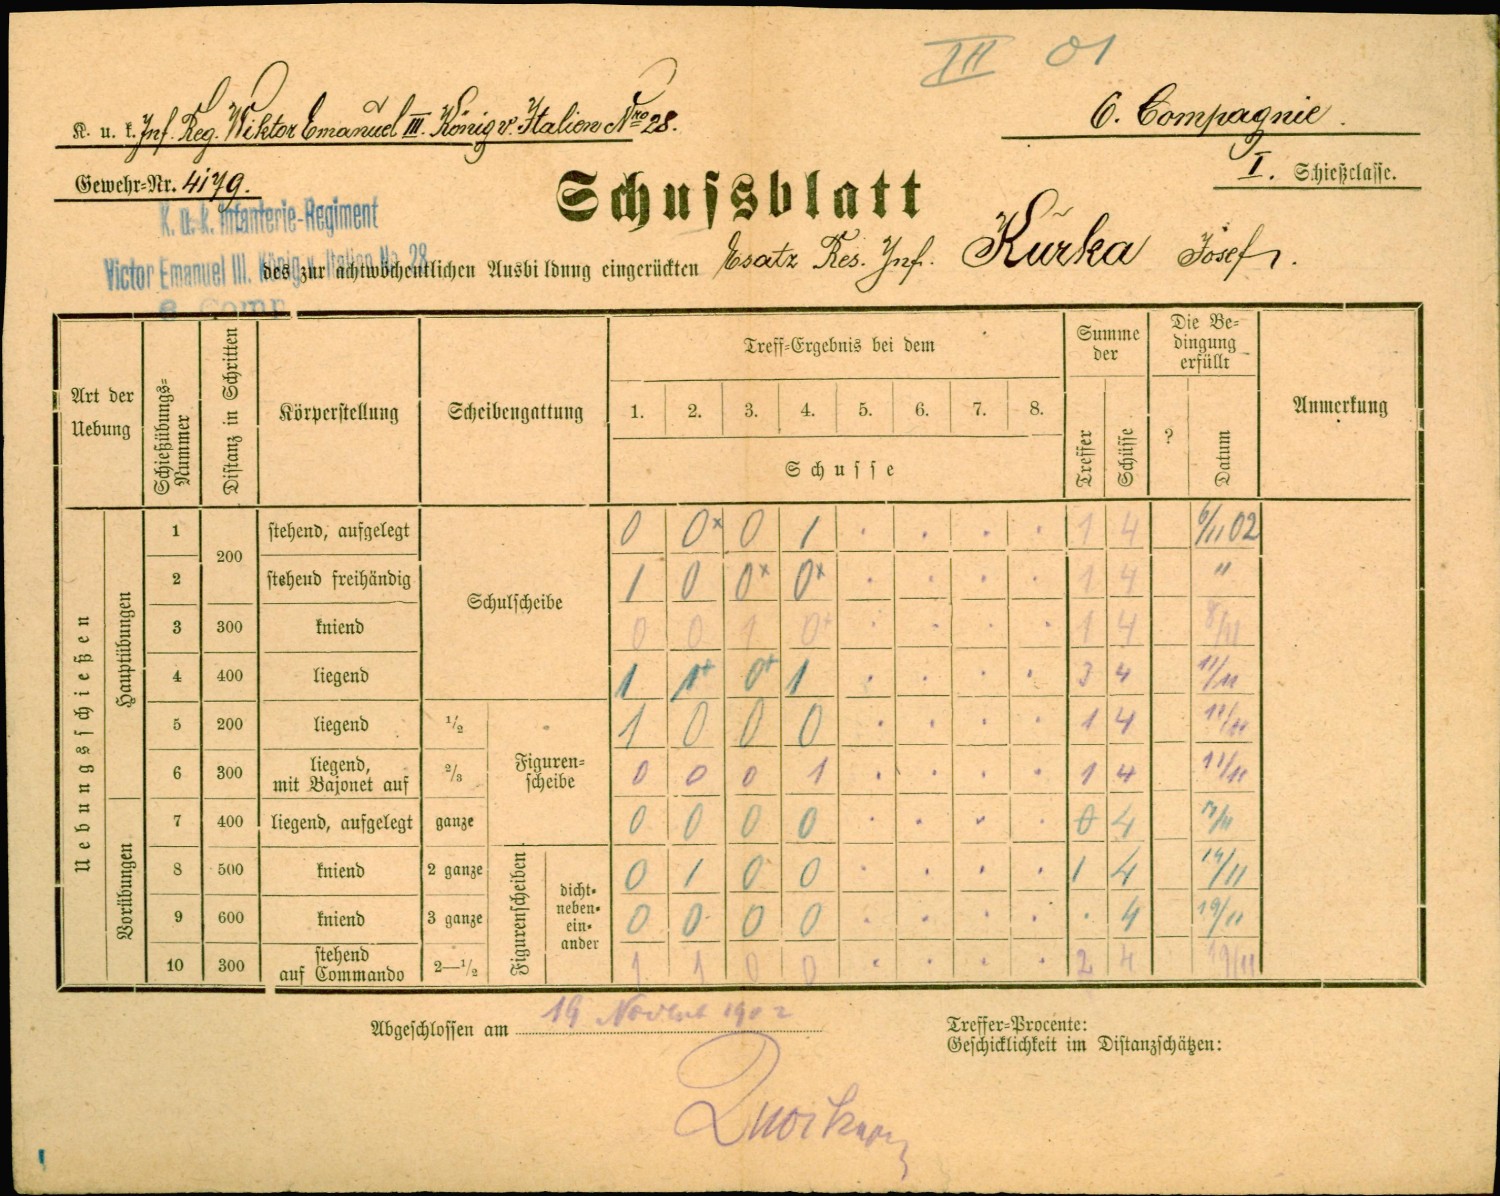 III 01
K. u. k. Inf. Reg. Viktor Emanuel III. König v. Italien Nro 28.
6. Compagnie.
Gewehr-Nr. 4179.
I. Schießclasse.
K. u. k. Infanterie-Regiment
Victor Emanuel III. König v. Italien No. 28
6 Comp.
Schussblatt
des zur achtwöchentlichen Ausbildung eingerückten Esatz Res. Inf. Kůrka Josef.
Art der Uebung | Schießübungs-Nummer | Distanz in Schritten | Körperstellung | Scheibengattung | Treff-Ergebnis bei dem | Summe der | Die Bedingung erfüllt | Anmerkung
1. 2. 3. 4. 5. 6. 7. 8. | Treffer | Schüsse | ? | Datum
Schusse
Uebungsschießen
Hauptübungen
Vorübungen
1 | 200 | stehend, aufgelegt | Schulscheibe | 0 | 0x | 0 | 1 | . | . | . | . | 1 | 4 | 6/11 02
2 | stehend freihändig | 1 | 0 | 0x | 0x | . | . | . | . | 1 | 4 | "
3 | 300 | kniend | 0 | 0 | 1 | 0+ | . | . | . | . | 1 | 4 | 8/11
4 | 400 | liegend | 1 | 1+ | 0+ | 1 | . | . | . | . | 3 | 4 | 11/11
5 | 200 | liegend | 1/2 | Figurenscheibe | 1 | 0 | 0 | 0 | . | . | . | . | 1 | 4 | 11/11
6 | 300 | liegend, mit Bajonet auf | 2/3 | 0 | 0 | 0 | 1 | . | . | . | . | 1 | 4 | 11/11
7 | 400 | liegend, aufgelegt | ganze | 0 | 0 | 0 | 0 | . | . | . | . | 0 | 4
8 | 500 | kniend | 2 ganze | Figurenscheiben | dicht-neben-ein-ander | 0 | 1 | 0 | 0 | . | . | . | . | 1 | 4 | 14/11
9 | 600 | kniend | 3 ganze | 0 | 0 | 0 | 0 | . | . | . | . | . | 4 | 19/11
10 | 300 | stehend auf Commando | 2—1/2 | 1 | 1 | 0 | 0 | . | . | . | . | 2 | 4 | 19/11
Abgeschlossen am 19 Novbr 1902
Treffer-Procente:
Geschicklichkeit im Distanzschätzen: